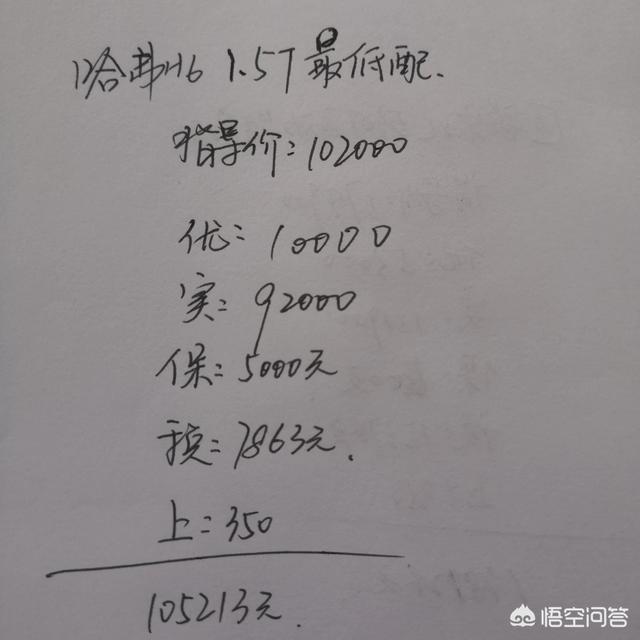 哈弗H6 1.5T最低配.
指导价:102000
优:10000
实:92000
保:5000元
税:7863元.
上:350
105213元.
悟空问答